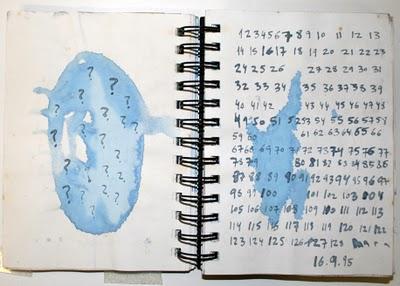 ?
?
? ?
? ? ?
?
? ? ?
? ? ? ?
? ? ? ?
1 2 3 4 5 6 7 8 9 10 11 12 13
14 15 16 17 18 19 20 21 22 23
24 25 26 27 28 29 30 31
32 33 34 35 36 37 38 39
40 41 42 43 44 45 46 47 48
49 50 51 52 53 54 55 56 57 58
59 60 61 62 63 64 65 66
67 68 69 70 71 72 73 74 75 76 77
78 79 80 81 82 83 84 85 86
87 88 89 90 91 92 93 94 95 96 97
98 99 100 101 102 103 104
105 106 107 108 109 110 111 112 113
114 115 116 117 118 119 120 121 122
123 124 125 126 127 128
16.9.95